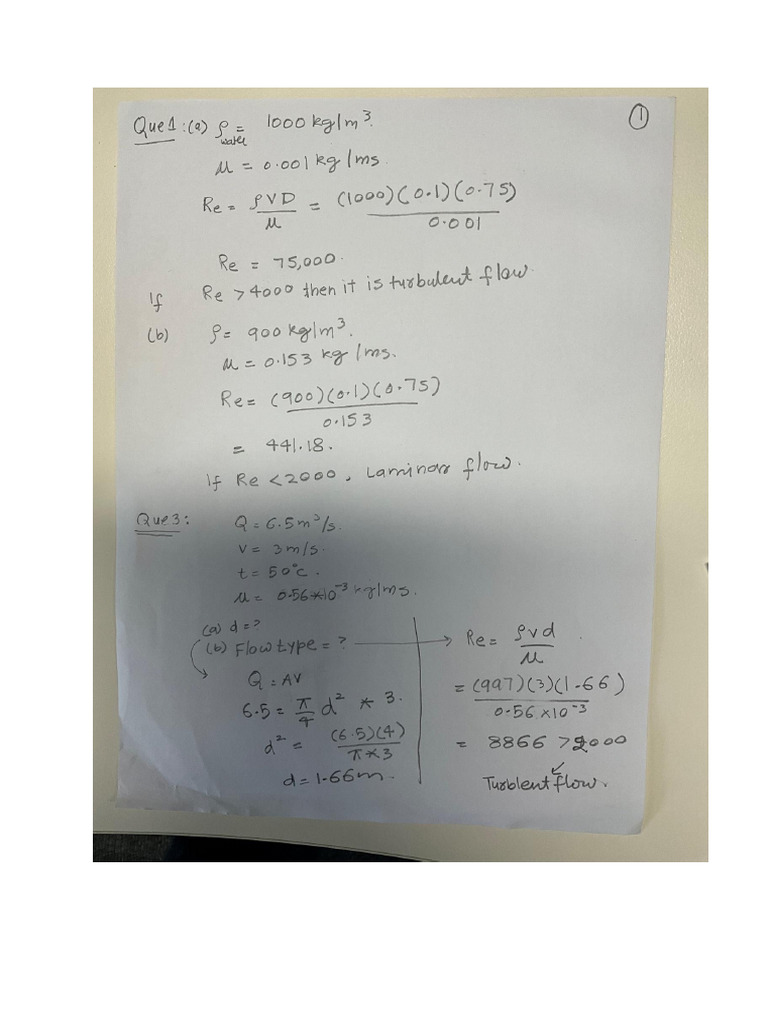 1
Que 1: (a) ρ water = 1000 kg/m³.
μ = 0.001 kg/ms.
Re = ρVD/μ = (1000)(0.1)(0.75)/0.001
Re = 75,000.
If Re > 4000 then it is turbulent flow.
(b) ρ = 900 kg/m³.
μ = 0.153 kg/ms.
Re = (900)(0.1)(0.75)/0.153
= 441.18.
If Re < 2000, Laminar flow.
Que 3: Q = 6.5 m³/s.
V = 3 m/s.
t = 50°c.
μ = 0.56*10⁻³ kg/ms.
(a) d = ?
(b) Flow type = ?
Q = AV
6.5 = π/4 d² * 3.
d² = (6.5)(4)/π*3
d = 1.66m.
Re = ρvd/μ.
= (997)(3)(1.66)/0.56×10⁻³
= 8866 > 2000
Turblent flow.